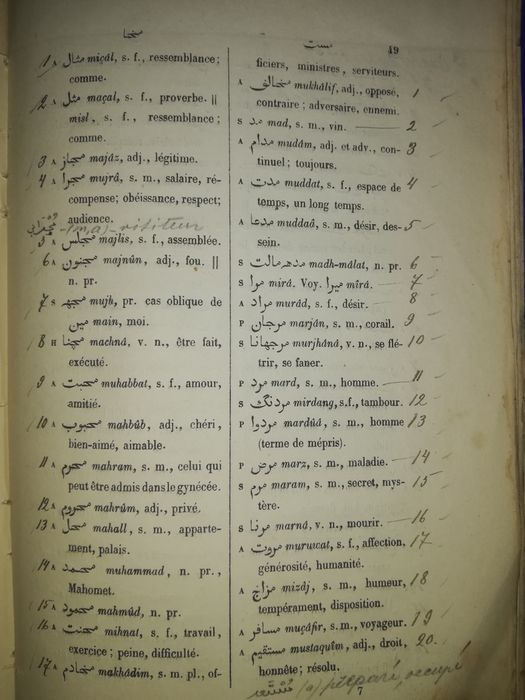 مست
49
1 A مثال miçâl, s. f., ressemblance;
comme.
2 A مثل maçal, s. f., proverbe. ||
misl, s. f., ressemblance;
comme.
3 A مجاز majâz, adj., légitime.
4 A مجرا mujrâ, s. m., salaire, ré-
compense; obéissance, respect;
audience.
(m, a) - visiteur
5 A مجلس majlis, s. f., assemblée.
6 A مجنون majnûn, adj., fou. ||
n. pr.
7 S مجهہ mujh, pr. cas oblique de
مين main, moi.
8 H مچنا machnâ, v. n., être fait,
exécuté.
9 A محبت muhabbat, s. f., amour,
amitié.
10 A محبوب mahbûb, adj., chéri,
bien-aimé, aimable.
11 A محرم mahram, s. m., celui qui
peut être admis dans le gynécée.
12 A محروم mahrûm, adj., privé.
13 A محل mahall, s. m., apparte-
ment, palais.
14 A محمد muhammad, n. pr.,
Mahomet.
15 A محمود mahmûd, n. pr.
16 A محنت mihnat, s. f., travail,
exercice; peine, difficulté.
17 A مخادم makhâdim, s. m. pl., of-
ficiers, ministres, serviteurs.
A مخالف mukhâlif, adj., opposé, 1
contraire; adversaire, ennemi.
S مد mad, s. m., vin. 2
A مدام mudâm, adj. et adv., con- 3
tinuel; toujours.
A مدت muddat, s. f., espace de 4
temps, un long temps.
A مدعا muddaâ, s. m., désir, des- 5
sein.
S مدهہ مالت madh-mâlat, n. pr. 6
S مرا mirâ. Voy. ميرا mîrâ. 7
A مراد murâd, s. f., désir. 8
P مرجان marjân, s. m., corail. 9
S مرجهانا murjhânâ, v. n., se flé- 10
trir, se faner.
P مرد mard, s. m., homme. 11
S مردنگ mirdang, s. f., tambour. 12
P مردوا mardûâ, s. m., homme 13
(terme de mépris).
P مرض marz, s. m., maladie. 14
S مرم maram, s. m., secret, mys- 15
tère.
S مرنا marnâ, v. n., mourir. 16
A مروت muruwat, s. f., affection, 17
générosité, humanité.
A مزاج mizâj, s. m., humeur, 18
tempérament, disposition.
A مسافر muçâfir, s. m., voyageur. 19
A مستقيم mustaquîm, adj., droit, 20.
honnête; résolu.
(a) préparé, occupé
7